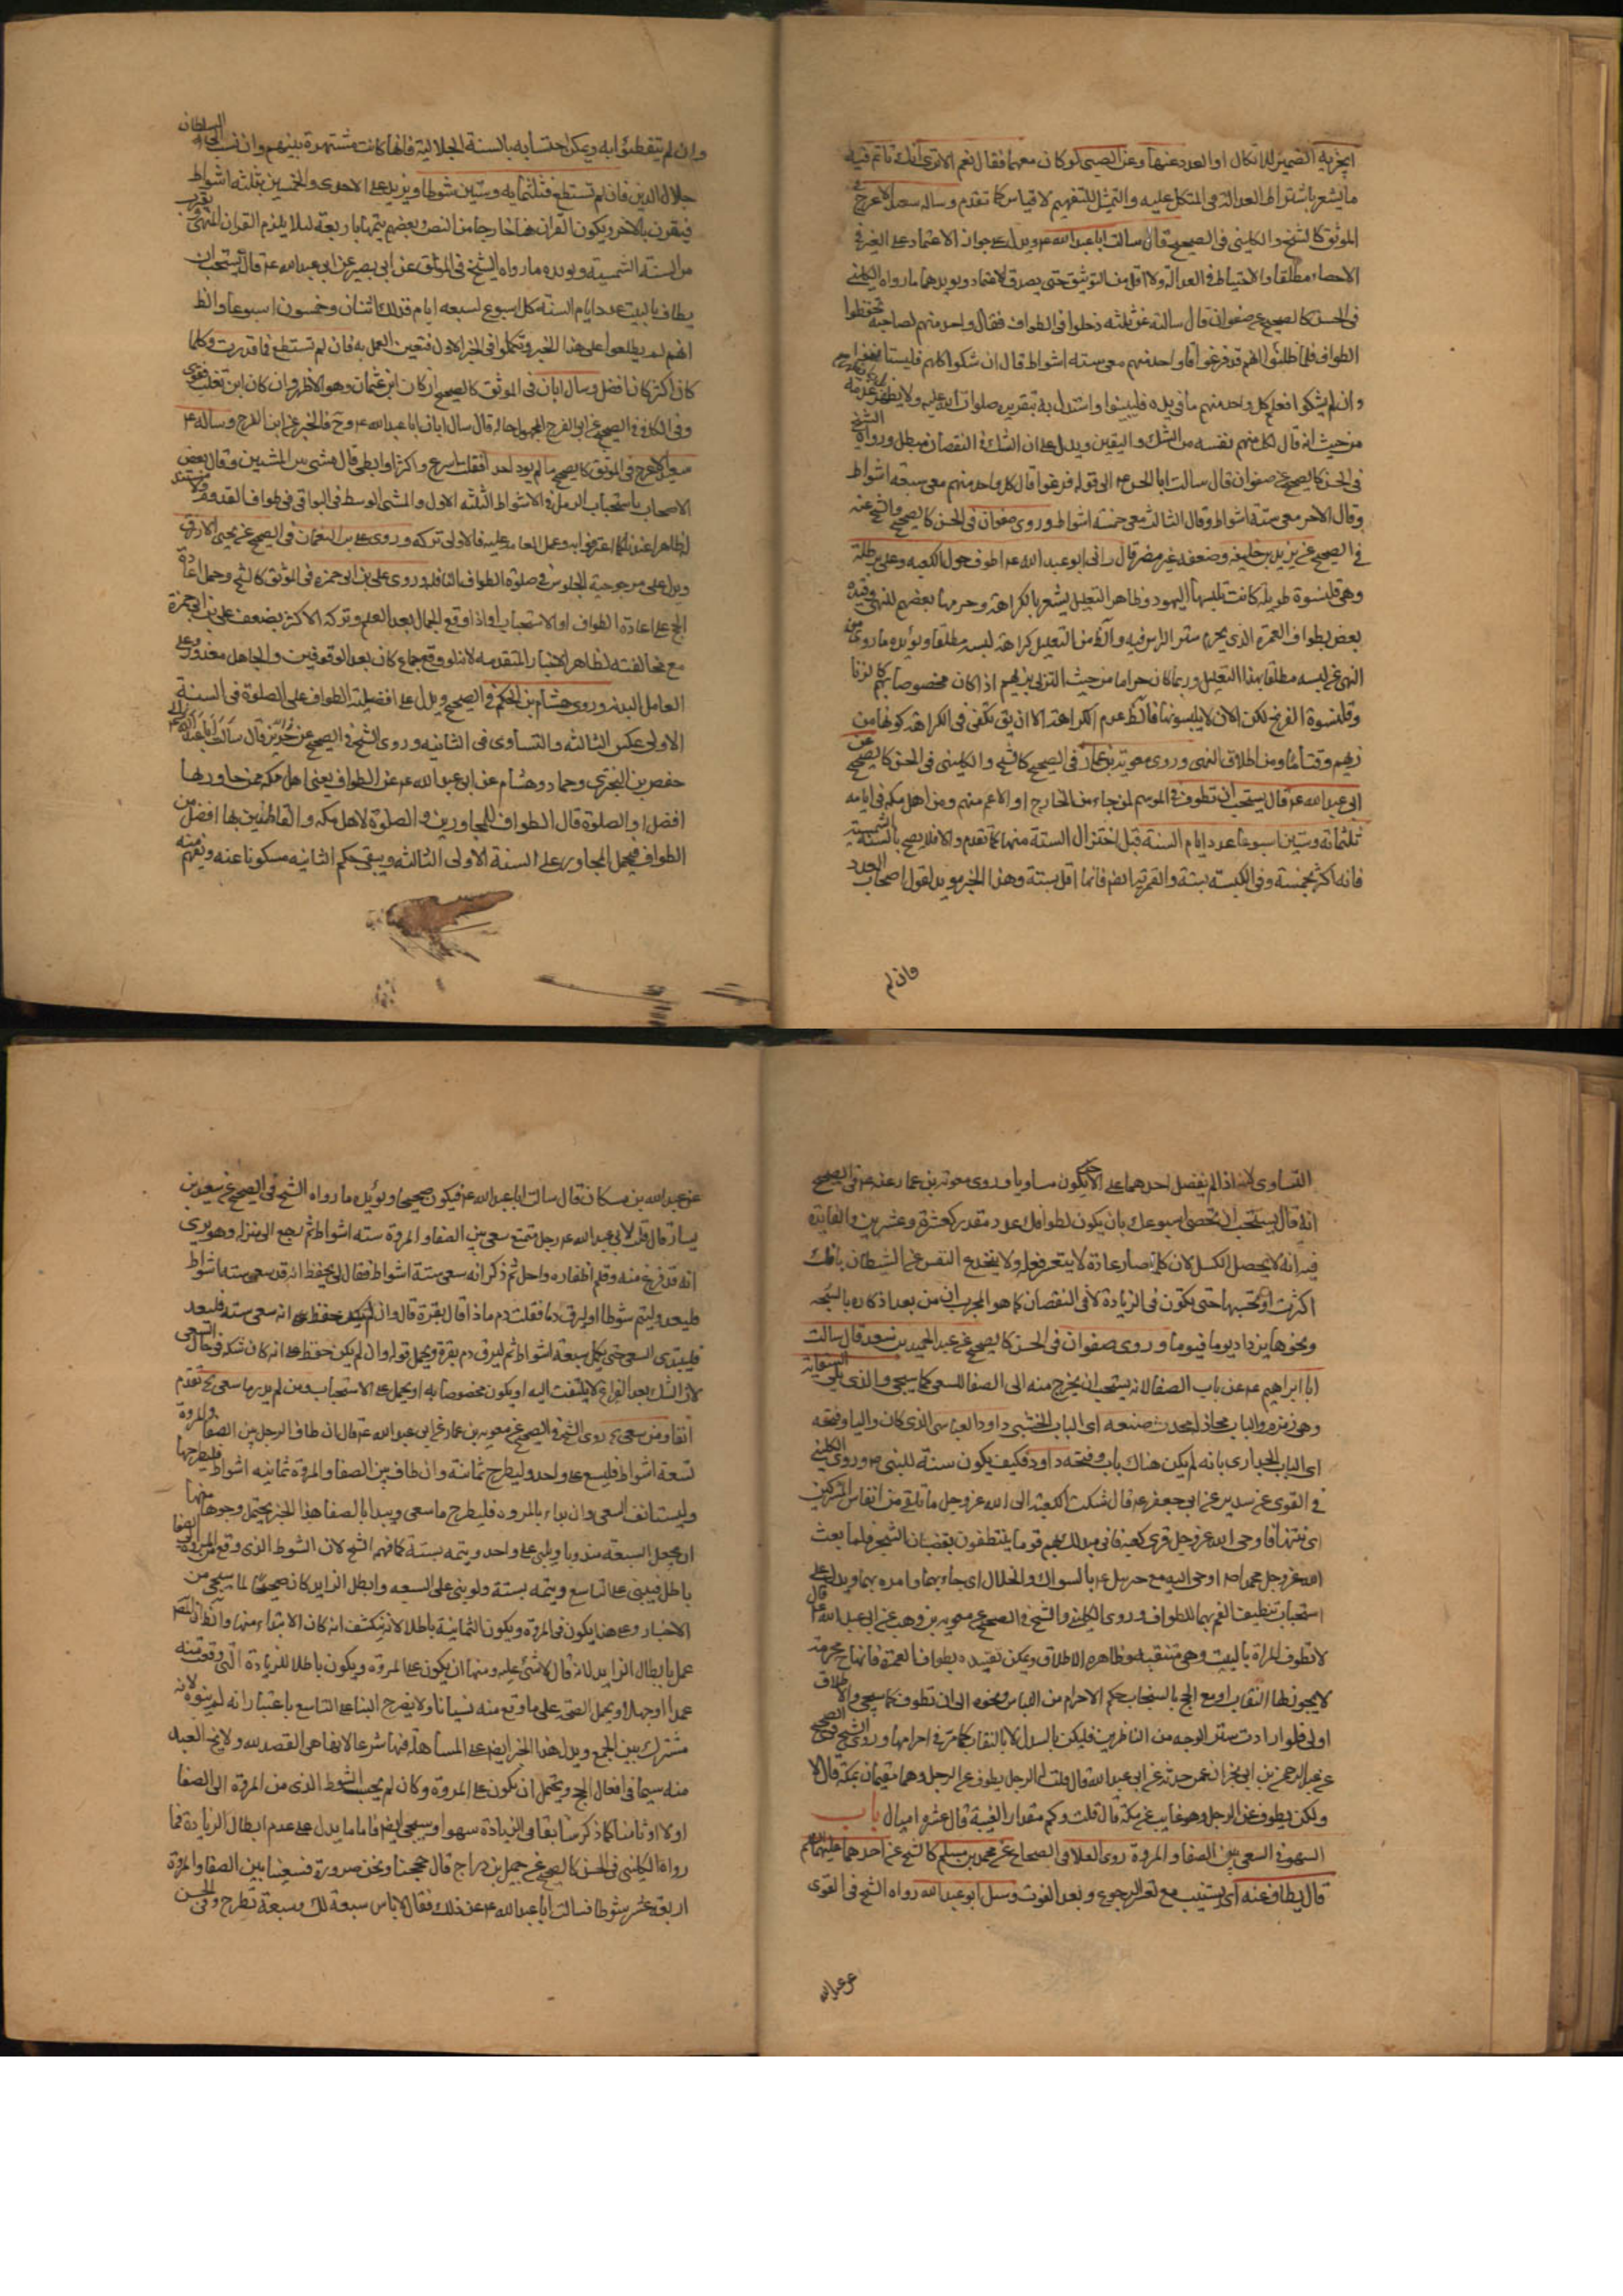 ايجزيه الضمير للاتكال او العدد عنها وعن الصبي لو كان معهما فقال نعم الا ترى انك تاتم فيه
ما يشعر باشتراط العدالة في المتكل عليه والتمثيل للتفهيم لا قياس كما تقدم وساله سعيد الاعرج في
الموثق كالشيخ والكليني في الصحيح قال سالت ابا عبد الله ع ويدل على جواز الاعتماد على الغير في
الاحصاء مطلقا والاحتياط في العدالة ولا اقل من التوثيق حتى يصدق الاعتماد ويويدهما ما رواه الكليني
في الحسن كالصحيح عن صفوان قال سالته عن ثلثه دخلوا في الطواف فقال واحد منهم لصاحبه تحفظوا
الطواف فلما ظنوا انهم قد فرغوا قال واحد منهم معي سته اشواط قال ان شكوا كلهم فليستانفوا
وان لم يشكوا وعلم كل واحد منهم ما في يده فليبنوا واستدل به بتقرير صلوات الله عليه
من حيث انه قال لكل منهم نفسه من الشك واليقين ويدل على ان الشك في النقصان مبطل ورواه الشيخ
في الحسن كالصحيح عن صفوان قال سالت ابا الحسن ع الى قوله فرغوا قال كل واحد منهم معي سبعة اشواط
وقال الاخر معي ستة اشواط وقال الثالث معي خمسة اشواط وروى صفوان في الحسن كالصحيح والشيخ عنه
في الصحيح عن يزيد بن خليفه وضعفه غير مضر قال راني ابو عبد الله ع اطوف حول الكعبه وعلي برطلة
وهي قلنسوة طويلة كانت تلبسها اليهود وظاهر التعليل يشعر بالكراهة وحرمها بعضهم للنهي وقيده
بعض بطواف العمرة الذي يحرم ستر الراس فيه والظ من التعليل كراهة لبسه مطلقا ويؤيده ما روى من
النهي عن لبسه مطلقا بهذا التعليل وربما كان حراما من حيث التزيي بزيهم اذا كان مخصوصا بهم كالزنا
وقلنسوة الفرنج لكن الان لا يلبسونها فالظ عدم الكراهة الا ان يق يكفي في الكراهة كونها من
زيهم وقتاما ومن اطلاق النهي وروى معوية بن عمار في الصحيح كالشيخ والكليني في الحسن كالصحيح عن
ابي عبد الله ع قال يستحب ان تطوف في الموسم لمن جاء من الخارج او الاعم منهم ومن اهل مكه في ايامه
ثلثمائة وستين اسبوعا عدد ايام السنة قبل اختزال الستة منها كما تقدم والا فلا يصح بالسنة الشمسية
فانه اكثر بخمسة وفي الكبيسه بستة والقمرية ايضم فانها اقل بستة وهذا الخبر مويد لقول اصحاب العدد
فان لم
وان لم يتفطنوا به ويمكن احتسابه بالسنة الجلالية فانها كانت مشتهرة بينهم وان نسب الى السلطان
جلال الدين فان لم تستطع فثلثمايه وستين شوطا ويزيد على الاحدى والخمسين بثلثه اشواط
فيقرن بالاخر ويكون القران هنا خارجا من النص وبعضهم يتمها باربعة لئلا يلزم القران المنهي
من السنة الشمسية ويويده ما رواه الشيخ في الموثق عن ابي بصير عن ابي عبد الله ع قال يستحب ان
يطاف بالبيت عدد ايام السنة كل اسبوع لسبعه ايام فذلك اثنان وخمسون اسبوعا والظ
انهم لم يطلعوا على هذا الخبر وتكلموا في الخبر الاول فتعين العمل به فان لم تستطع فما قدرت وكلما
كان اكثر كان افضل وسال ابان في الموثق كالصحيح ان كان ابن عثمان وهو الاظهر وان كان ابن تغلب فقوى
وفي الكافي في الصحيح عن ابي الفرج المجهول حاله قال سال ابان ابا عبد الله ع وح فالخبر عن ابن الفرج وساله ع
سعيد الاعرج في الموثق كالصحيح ما لم يوذ احد افقال اسرع واكثر او ابطى قال مشي بين المشيين وقال بعض
الاصحاب باستحباب الرمل في الاشواط الثلثه الاول والمشي الوسط في البواقي في طواف القدوم
لظاهر وعمل العامه عليه فالاولى تركه وروى على بن النعمان في الصحيح عن يحيى الازرق
ويدل على مرجوحية الجلوس في صلوة الطواف النافله وروى على بن ابي حمزه في الموثق كالشيخ وحمل اعادة
الحج على اعادة الطواف او الاستحباب اذا وقع الجماع بعد العلم وتركه الاكثر بضعف على بن ابي حمزة
مع مخالفته لظاهر الاخبار المتقدمه لانه لو وقع جماع كان بعد الوقوفين والجاهل معذور وعلى
العامل البدنة وروى هشام بن الحكم في الصحيح ويدل على افضلية الطواف على الصلوة في السنة
الاولى عكس الثالثه والتساوى في الثانيه وروى الشيخ في الصحيح عن حريز قال سالت ابا عبد الله ع
حفص بن البختري وحماد وهشام عن ابي عبد الله ع عن الطواف يعني اهل مكه ممن جاور بها
افضل او الصلوة قال الطواف للمجاورين والصلوة لاهل مكه والقاطنين بها افضل من
الطواف فيحمل المجاور على السنة الاولى الثالثه ويبقى حكم الثانيه مسكوتا عنه ويفهم منه
التساوى لانه اذا لم يفضل احدهما على الاخر يكون مساويا وروى معوية بن عمار عنه ع في الصحيح
انه قال يستحب ان تحصى اسبوعك بان يكون لطوافك عدد مقدر كعشرة وعشرين والفايدة
فيه انه لا يحصل الكسل لان كلما صار عادة لا يتعسر فعله ولا ينخدع النفس عن الشيطان بانك
اكثرت او تحبها حتى تكون في الزيادة لا في النقصان كما هو المجرب ان من يعد اذكاره بالسبحه
ونحوها يزداد يوما فيوما وروى صفوان في الحسن كالصحيح عن عبد الحميد بن سعد قال سالت
ابا ابراهيم ع عن باب الصفا لانه يستحب ان يخرج منه الى الصفا للسعي كما سيجي والذي يلي السقاية
وهي زمزم والباب محاذ لمحدث صنعه اى الباب الخشبي داود العباسي الذي كان واليا وفتحه
اى الباب الجداري بانه لم يكن هناك باب وفتحه داود فكيف يكون سنة للنبي ص وروى الكليني
في القوى عن سدير عن ابي جعفر ع قال شكت الكعبة الى الله عز وجل ما تلقى من انفاس المشركين
اى نتنها فاوحى الله عز وجل قري كعبه فاني مبدلك بهم قوما يتنظفون بقضبان الشجر فلما بعث
الله عز وجل محمدا ص اوحى اليه مع جبريل ع بالسواك والخلال اى جاء بهما وامره بهما ويدل على
استحباب تنظيف الفم بهما للطواف وروى الكليني والشيخ في الصحيح عن معوية بن وهب عن ابي عبد الله ع قال
لا تطوف المراة بالبيت وهي متنقبة وظاهره الاطلاق ويمكن تقييده بطواف العمرة فانها ح محرمة
لا يجوز لها النقاب او مع الحج باستحباب حكم الاحرام من اللباس ونحوه الى ان تطوف كما سيجي والاطلاق
اولى فلو ارادت ستر الوجه من الناظرين فليكن بالسدل لا بالنقاب كما مر في احرامها وروى الشيخ في الصحيح
عن عبد الرحمن بن ابي نجران عمن حدثه عن ابي عبد الله قال قلت له الرجل يطوف عن الرجل وهما مقيمان بمكة قال لا
ولكن يطوف عن الرجل وهو غايب عن مكة قال قلت وكم مقدار الغيبة قال عشرة اميال باب
السهو في السعي بين الصفا والمروة روى العلا في الصحاح عن محمد بن مسلم كالشيخ عن احدهما عليهما السلم
قال يطاف عنه اى يستنيب مع تعسر الرجوع وبعد الفوت وسئل ابو عبد الله رواه الشيخ في القوى
عن عبد الله
عن عبد الله بن مسكان قال سالت ابا عبد الله ع فيكون صحيحا ويؤيده ما رواه الشيخ في الصحيح عن سعيد بن
يسار قال قلت لابي عبد الله ع رجل متمتع سعى بين الصفا والمروة سته اشواط ثم رجع الى منزله وهو يرى
انه قد فرغ منه وقلم اظفاره واحل ثم ذكر انه سعى ستة اشواط فقال لي يحفظ انه قد سعى سته اشواط
فليعد وليتم شوطا وليرق دما فقلت دم ماذا قال بقرة قال وان لم يكن حفظ انه سعى سته فليعد
فليبتدى السعى حتى يكمل سبعة اشواط ثم ليرق دم بقرة ويحمل قوله وان لم يكن حفظ على انه كان شكه في حال السعى
لان الشك بعد الفراغ لا يلتفت اليه او يكون مخصوصا به او يحمل على الاستحباب ومن لم يدر ما سعى كما تقدم
انفا ومن سعى روى الشيخ في الصحيح عن معويه بن عمار عن ابي عبد الله ع قال ان طاف الرجل بين الصفا والمروة
تسعة اشواط فليسع على واحد وليطرح ثمانية وان طاف بين الصفا والمروة ثمانيه اشواط فليطرحها
وليستانف السعى وان بداء بالمروه فليطرح ما سعى ويبدا بالصفا هذا الخبر يحتمل وجوها منها
ان يجعل السبعه مندوبا ويبنى على واحد ويتمه بستة كما فهمه الشيخ لان الشوط الذي وقع
باطل فيبنى على التاسع ويتمه بستة ولو بنى على السبعه وابطل الزايد كان صحيحا لما سيجي من
الاخبار وعلى هذا يكون في المروة ويكون الثمانية باطلا لانه ينكشف انه كان الابتداء منها
عمل بابطال الزايد لانه قال لا شئ عليه ومنها ان يكون على المروة ويكون باطلا للزيادة التي وقعت منه
عمدا او جهلا ويحمل الصحة على ما وقع منه نسيانا ولا يضر ح البناء على التاسع باعتبار انه لم ينوه لانه
مشترك بين الجميع ويدل هذا الخبر ايضم على المساهلة فيها شرعا لانها هي القصد لله ولا يخ العبد
منه سيما في افعال الحج ويحتمل ان يكون على المروة وكان لم يحسب الشوط الذي من المروة الى الصفا
اولا او ثامنا كما ذكر سابقا في الزيادة سهوا وسيجي ايضم فاما ما يدل على عدم ابطال الزيادة فما
رواه الكليني في الحسن كالصحيح عن جميل بن دراج قال حججنا ونحن صرورة فسعينا بين الصفا والمروة
اربعة عشر شوطا فسالت ابا عبد الله ع عن ذلك فقال لا باس سبعة لك وسبعة تطرح وفي الحسن